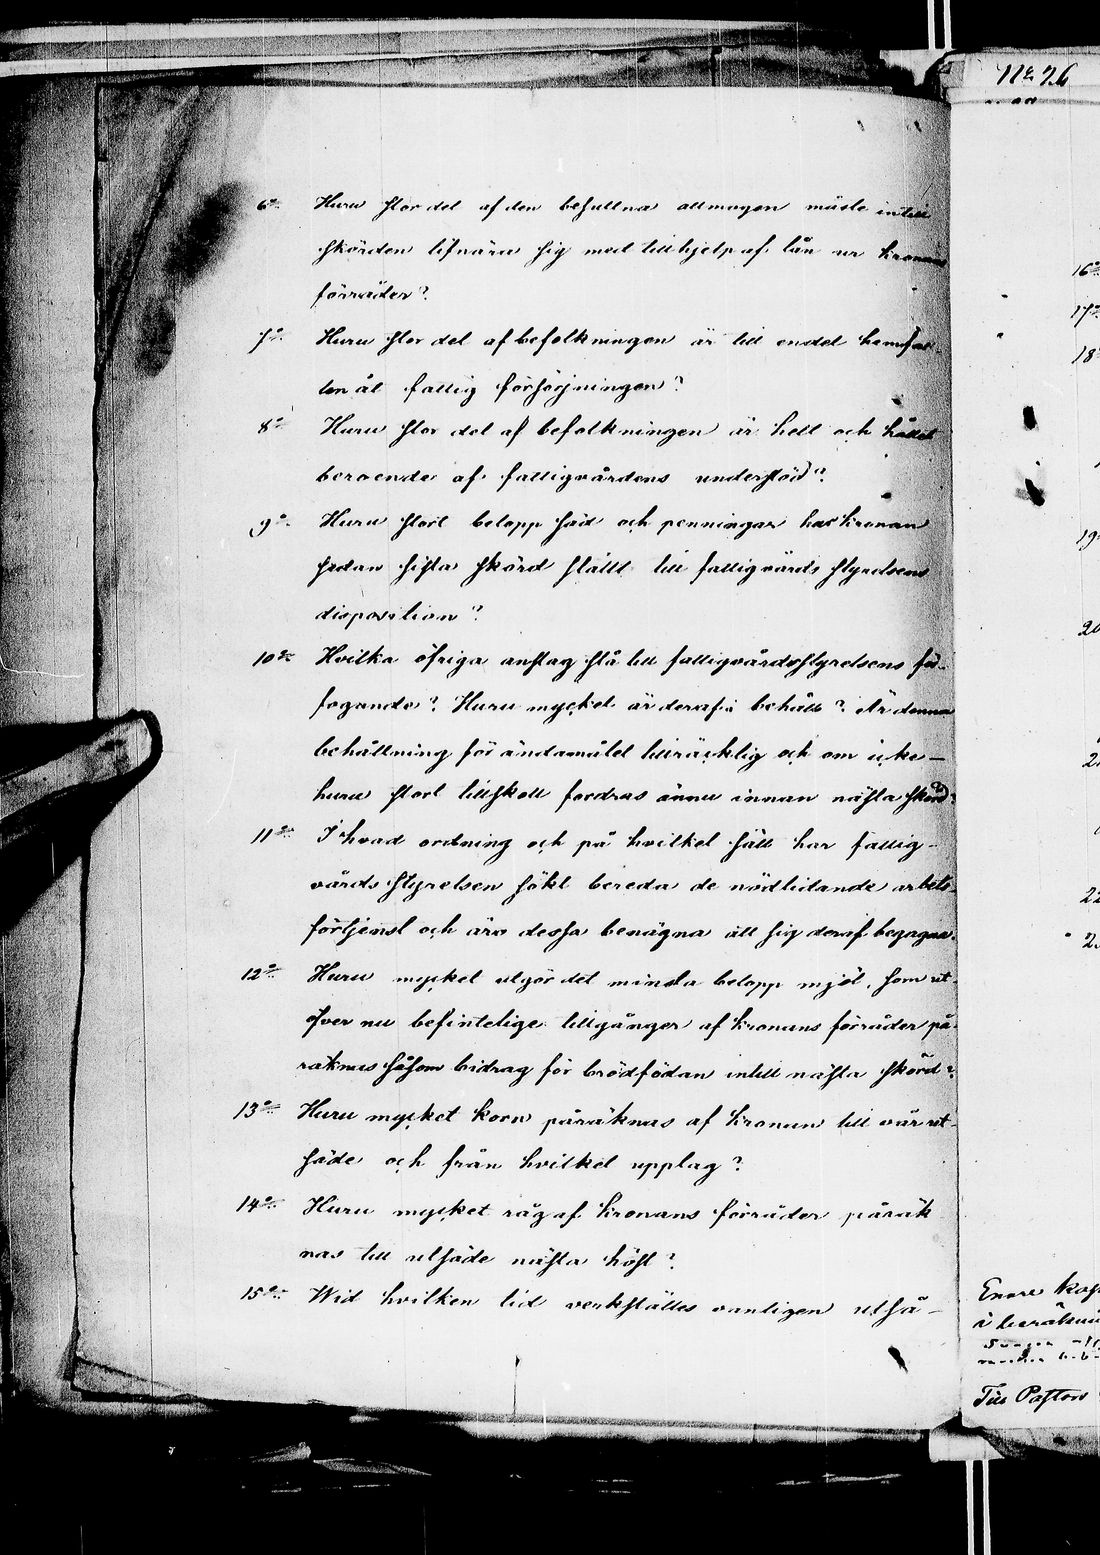 6:o Huru stor del af den besuttna allmogen måste intill
skörden lifnära sig med tillhjelp af lån ur kronans
förråder?
7:o Huru stor del af befolkningen är till endel hemfal-
len åt fattig försörjningen?
8:o Huru stor del af befolkningen är helt och hållet
beroende af fattigvårdens understöd?
9:o Huru stort belopp säd och penningar har kronan
sedan sista skörd ställt till fattigvårds styrelsens
disposition?
10:o Hvilka öfriga anslag stå till fattigvårdsstyrelsens för-
fogande? Huru mycket är deraf i behåll? Är denna
behållning för ändamålet tillräcklig och om icke —
huru stort tillskott fordras ännu innan nästa skörd?
11:o I hvad ordning och på hvilket sätt har fattig-
vårds styrelsen sökt bereda de nödlidande arbets-
förtjenst och äro dessa benägna att sig deraf begagna.
12:o Huru mycket utgör det minsta belopp mjöl, som ut-
öfver nu befintelige tillgånger af kronans förråder på-
räknas såsom bidrag för brödfödan intill nästa skörd?
13:o Huru mycket korn påräknas af kronan till vår ut-
säde och från hvilket upplag?
14:o Huru mycket råg af kronans förråder påräk
nas till utsäde nästa höst?
15:o Wid hvilken tid verkställes vanligen utsä-
No 26
16:o
17:o
18
19
20
2
22
2
Enare
Till Pastor